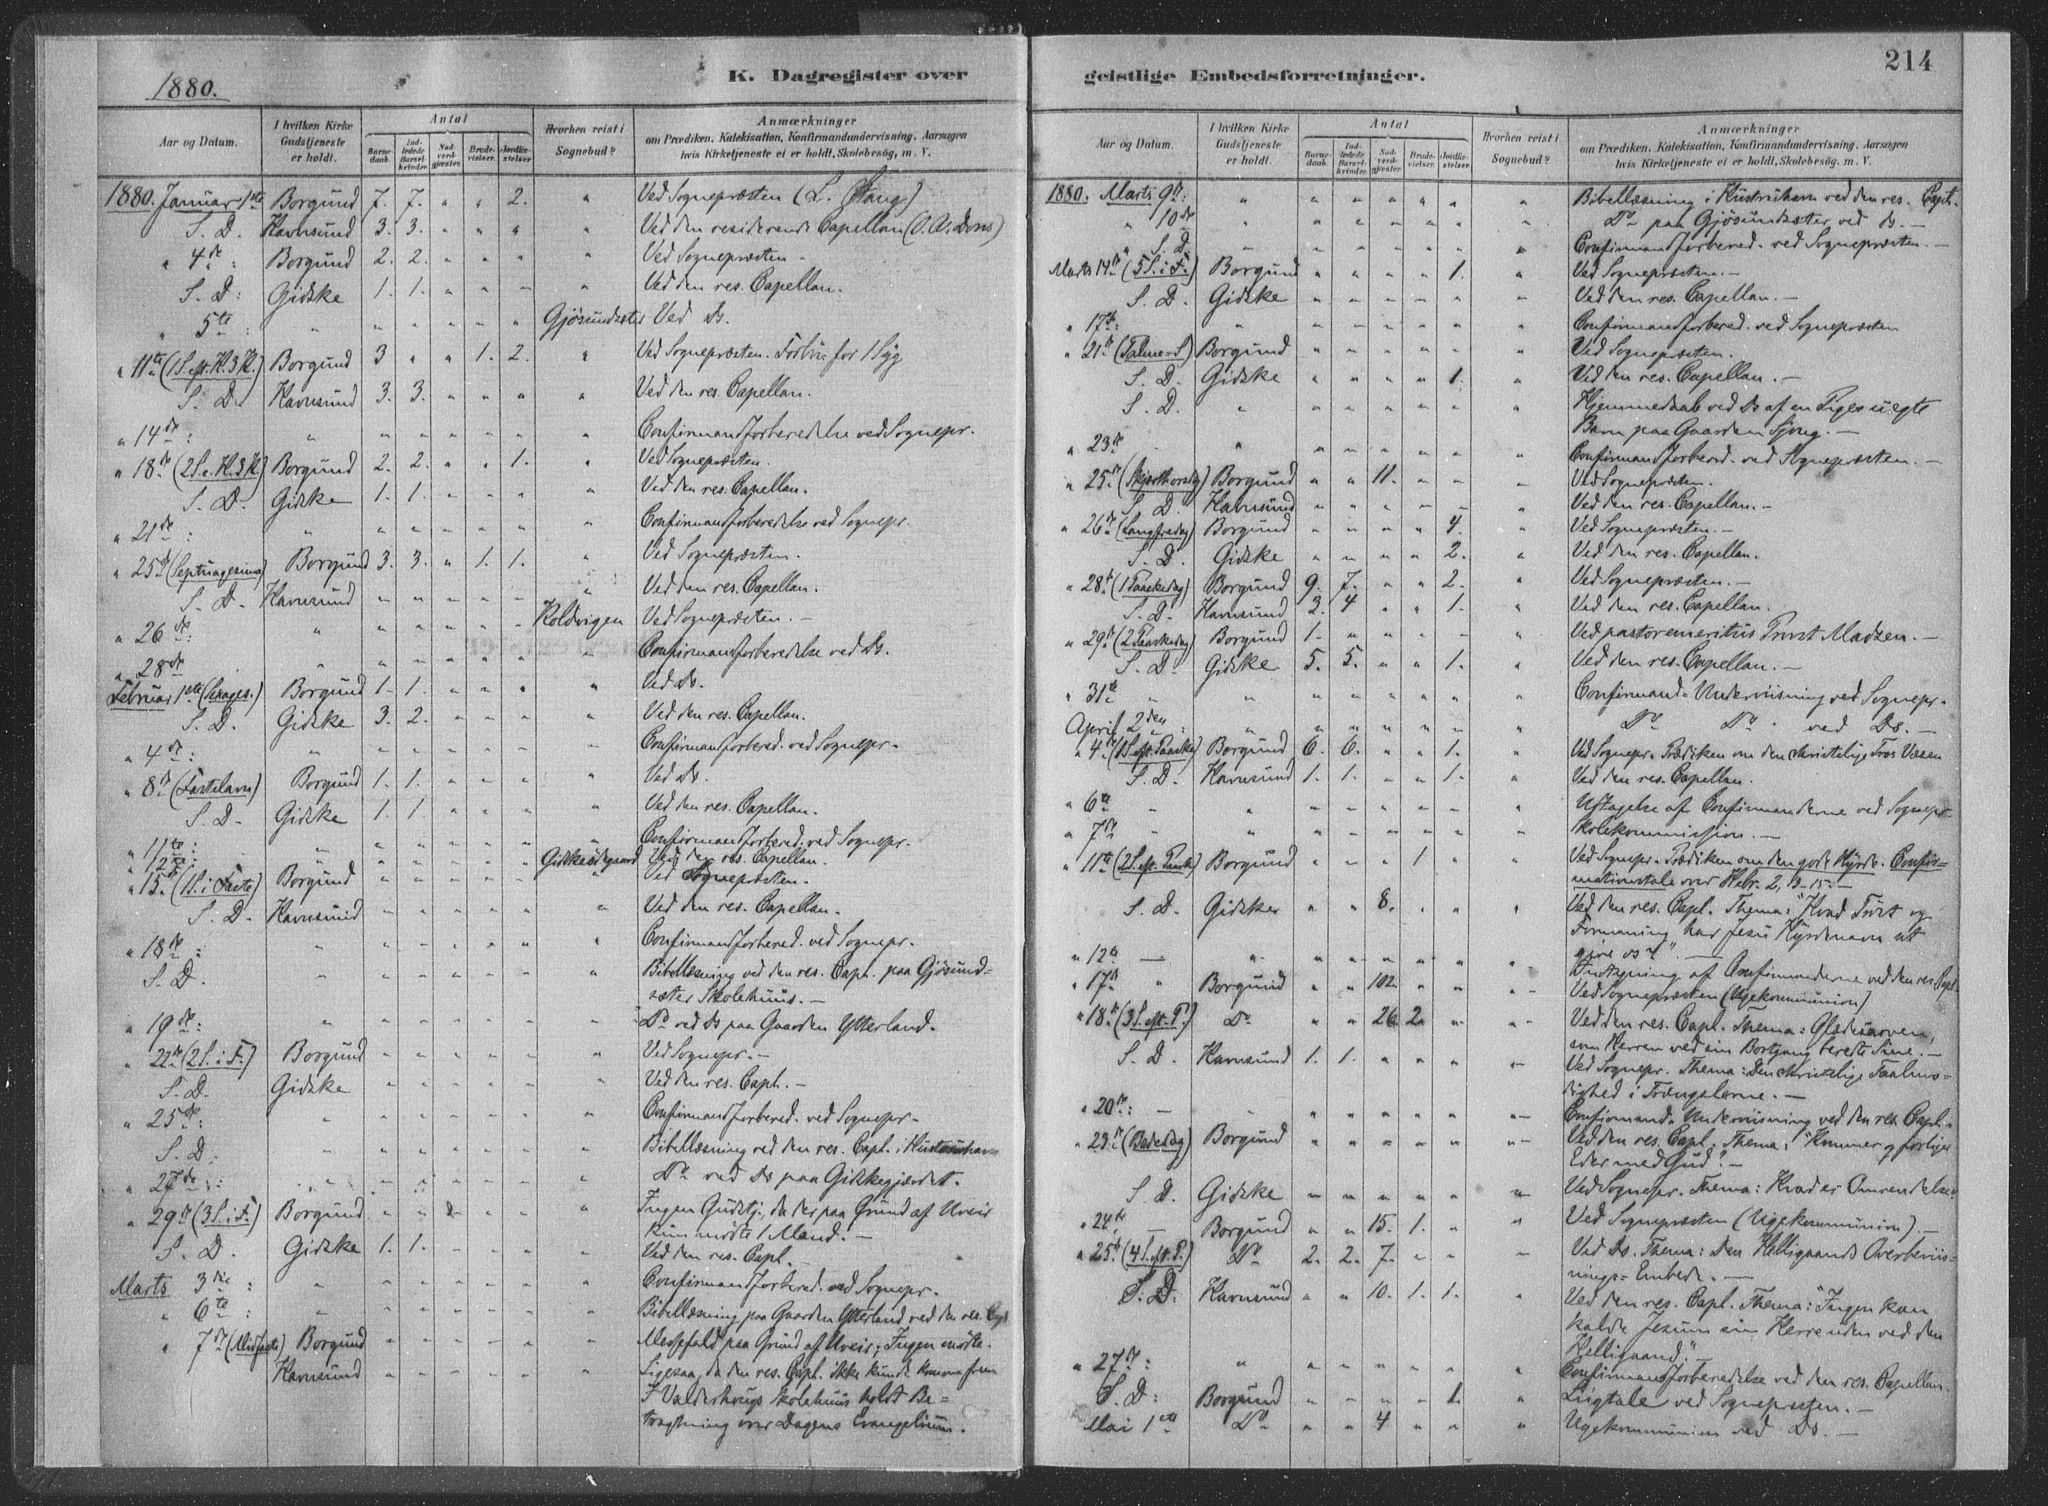 1880.
K. Dagregister over
Aar og Datum.
I hvilken Kirke Gudstjeneste er holdt.
Antal
Barnedaab.
Indledede Barselkvinder.
Nadverdgjester.
Brudevielser.
Jordfæstelser.
Hvorhen reist i Sognebud?
Anmærkninger
om Prædiken, Katekisation, Konfirmandundervisning, Aarsagen hvis Kirketjeneste ei er holdt, Skolebesög, m. V.
1880. Januar 1ste Borgund 7. 7. " " 2. " Ved Sognepræsten (L. Stang)
S. D. Havnsund 3. 3. " " " " Ved den residerende Capellan (O. A. Dons)
" 4de: Borgund 2. 2. " " " " Ved Sognepræsten -
S. D: Gidske 1. 1. " " " " Ved den res. Capellan.
" 5te: " " " " " " Gjösundsæter Ved Ds.
" 11te (1 S. eft. H. 3 K.) Borgund 3 " " 1. 2. " Ved Sognepræsten. Forbön for 1 Syg
S. D. Havnsund 3. 3. " " " " Ved den res. Capellan.
" 14de: " " " " " " " Confirmandforberedelse ved Sognepr.
" 18de (2 S. e. H. 3 K) Borgund 2. 2. " " 1. " Ved Sognepræsten.
S. D. Gidske 1. 1. " " " " Ved den res. Capellan.
" 21de: " " " " " " " Confirmandforberedelse ved Sognepr.
" 25de (Septuagesima) Borgund 3. 3. " 1. 1. " Ved Sognepræsten.
S. D. Havnsund " " " " " " Ved den res. Capellan.
" 26de: " " " " " " Holdvigen Ved Sognepræsten. -
" 28de " " " " " " " Confirmandforberedelse ved Ds.
Februar 1ste (Sexages.) Borgund 1. 1. " " " " Ved Ds.
S. D. Gidske 3. 2. " " " " Ved den res. Capellan.
" 4de: " " " " " " " Confirmandforbered. ved Sognepr.
" 8de (Fastelavn) Borgund 1. 1. " " " " Ved Ds.
S. D. Gidske 1. 1. " " " " Ved den res. Capellan.
" 11te: " " " " " " " Confirmandforbered. ved Sognepr.
" 12te: " " " " " " Gidskeödegaard Ved den res. Capellan.
" 15de (1 S. i Faste) Borgund " " " " " " Ved Sognepræsten.
S. D. Havnsund " " " " " " Ved den res. Capellan.
" 18de: " " " " " " " Confirmandforbered. ved Sognepr.
S. D. " " " " " " " Bibellæsning ved den res. Capl. paa Gjösund-
sæter Skolehuus. -
" 19de: " " " " " " " Do ved Ds paa Gaarden Ytterland.
" 22de (2 S. i F.) Borgund " " " " " " Ved Sognepr. -
S. D. Gidske " " " " " " Ved den res. Capl. -
" 25de: " " " " " " " Confirmandforbered. ved Sognepr.
S. D. " " " " " " " Bibellæsning ved den res. Capl. i Hustruhavn
" 27de: " " " " " " " Do ved Ds paa Gidskegjærdet.
" 29de (3 S. i F.) Borgund " " " " " Ingen Gudstj., da der paa Grund af Uveir
kun mödte 1 Mand. -
S. D. Gidske 1. 1. " " " " Ved den res. Capl. -
Marts 3die: " " " " " " " Confirmandforbered. ved Sognepr.
" 6te: " " " " " " " Bibellæsning paa Gaarden Ytterland ved den res. Capl
" 7de (Midfaste) Borgund " " " " " " Messefald paa Grund af Uveir; Ingen mödte.
Havnsund " " " " " " Ligesaa, da den res. Capl. ikke kunde komme frem
I Valderhougs Skolehuus holdt Be-
tragtning over Dagens Evangelium.
214
geistlige Embedsforretninger.
Aar og Datum.
I hvilken Kirke Gudstjeneste er holdt.
Antal
Barnedaab.
Indledede Barselkvinder.
Nadverdgjester.
Brudevielser.
Jordfæstelser.
Hvorhen reist i Sognebud?
Anmærkninger
om Prædiken, Katekisation, Konfirmandundervisning, Aarsagen hvis Kirketjeneste ei er holdt, Skolebesög, m. V.
1880. Marts 9de: " " " " " " " Bibellæsning i Hustruhavn ved den res. Capl.
" 10de " " " " " " " Do paa Gjösundsæter ved Ds. -
" S. D. " " " " " " " Confirmandforbered. ved Sognepræsten. -
Marts 14de (5 S. i F.) Borgund " " " " 1. " Ved Sognepræsten. -
S. D. Gidske " " " " " " Ved den res. Capellan. -
" 17de: " " " " " " " Confirmandforbered. ved Sognepræsten
" 21de (Palme-S) Borgund " " " " " " Ved Sognepræsten.
S. D. Gidske " " " " 1. " Ved den res. Capellan. -
S. D. " " " " " " " Hjemmedaab ved Ds af en Piges uægte
Barn paa Gaarden -
" 23de " " " " " " " Confirmandforbered. ved Sognepræsten. -
" 25de (Skjærthorsdg) Borgund " " 11. " " " Ved Sognepræsten.
S. D. Havnsund " " " " " " Ved den res. Capellan. -
" 26de (Langfredag) Borgund " " " " 4. " Ved Sognepræsten. -
S. D. Gidske " " " " 2. " Ved den res. Capellan.
" 28de (1 Paaskedag) Borgund 9. 7. " " 2. " Ved Sognepræsten. -
S. D. Havnsund 3. 4 " " 1. " Ved den res. Capellan.
" 29de (2 Paaskedag) Borgund 1. " " " " " Ved pastor emeritus Provst Madzen. -
S. D. Gidske 5. 5. " " 1. " Ved den res. Capellan. -
" 31te " " " " " " " Confirmand-Underviisning ved Sognepr.
April 2den: " " " " " " " Do Do ved Ds. -
" 4de (1 S. eft. Paaske) Borgund 6. 6. " " 1. " Ved Sognepr. Prædiken om den christelige Tros Væsen
S. D. Havnsund 1. 1. " " 1. " Ved den res. Capellan.
" 6te " " " " " " " Udtagelse af Confirmanderne ved Sognepr
" 7de " " " " " " " Skolekommission. -
" 11te (2 S. eft. Paaske) Borgund " " " 1 " " Ved Sognepr. Prædiken om den gode Hyrde. Confir-
mationstale over Hebr. 2, 13-15. -
S. D. Gidske " " 8. " " " Ved den res. Capl. Thema: "Hvad Tröst og
Formaning har Jesu Hyrdenavn at
give os?" -
" 12te - " " " " " " " af Confirmanderne ved den res. Capl
" 17de " Borgund " " 102. " " " Ved Sognepræsten (Ugekommunion)
" 18de (3 S. eft. P.) Do " " 26. 2. " " Ved den res. Capl. Thema: Glædesarven,
som Herren ved sin Bortgang beredte Sine. -
S. D. Havnsund 1. 1. " " " " Ved Sognepr. Thema: Den christelige Taalmo-
dighed i Trængslerne. -
" 20de: - " " " " " " " Confirmand-Underviisning ved den res. Capl.
" 23de (Bededag) Borgund " " " " " " Ved den res. Capl. Thema: "Kommer og forliges
Eder med Gud". -
S. D. Gidske " " " " " " Ved Sognepr. Thema: Hvad er Omvendelse
" 24de - Borgund " " 15. 1. " " Ved Sognepræsten (Ugekommunion). -
" 25de (4 S. eft. P.) Do 2. 2. 7. " " " Ved Ds. Thema: Den Helligaands Overbeviis-
nings-Embede. -
S. D. Havnsund " " 10. 1. 1. " Ved den res. Capl. Thema: "Ingen kan
kalde Jesum sin Herre uden ved den
Helligaand"
" 27de: " " " " " " " Confirmandforberedelse ved den res. Capellan.
S. D: Borgund " " " " 1. " Liigtale ved Sognepræsten. -
Mai 1ste Do " " 4 " " " Ugekommunion ved Ds. -